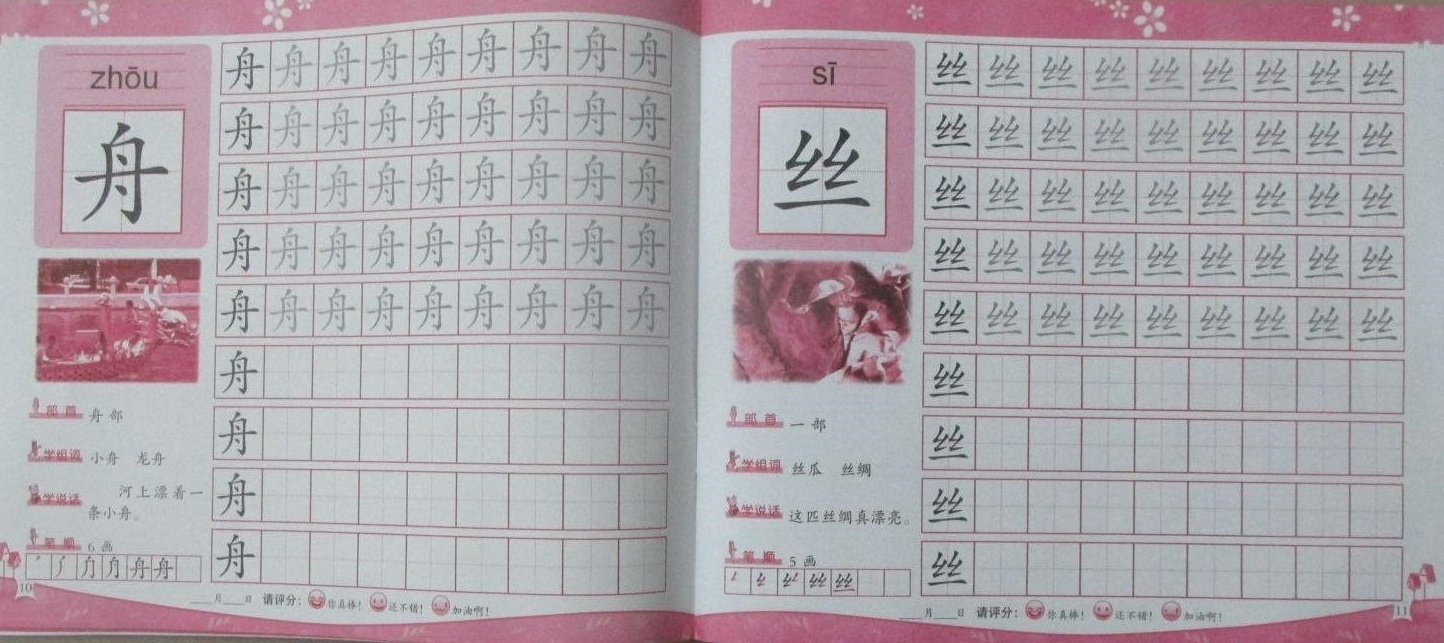 zhōu
舟
舟 舟 舟 舟 舟 舟 舟 舟 舟
舟 舟 舟 舟 舟 舟 舟 舟 舟
舟 舟 舟 舟 舟 舟 舟 舟 舟
舟 舟 舟 舟 舟 舟 舟 舟 舟
舟 舟 舟 舟 舟 舟 舟 舟 舟
舟
舟
舟
舟
部首 舟部
学组词 小舟 龙舟
学说话 河上漂着一
条小舟。
笔顺 6画
舟
10
月 日 请评分: 你真棒! 还不错! 加油啊!
sī
丝
丝 丝 丝 丝 丝 丝 丝 丝 丝
丝 丝 丝 丝 丝 丝 丝 丝 丝
丝 丝 丝 丝 丝 丝 丝 丝 丝
丝 丝 丝 丝 丝 丝 丝 丝 丝
丝 丝 丝 丝 丝 丝 丝 丝 丝
丝
丝
丝
丝
部首 一部
学组词 丝瓜 丝绸
学说话 这匹丝绸真漂亮。
笔顺 5画
丝
月 日 请评分: 你真棒! 还不错! 加油啊!
11